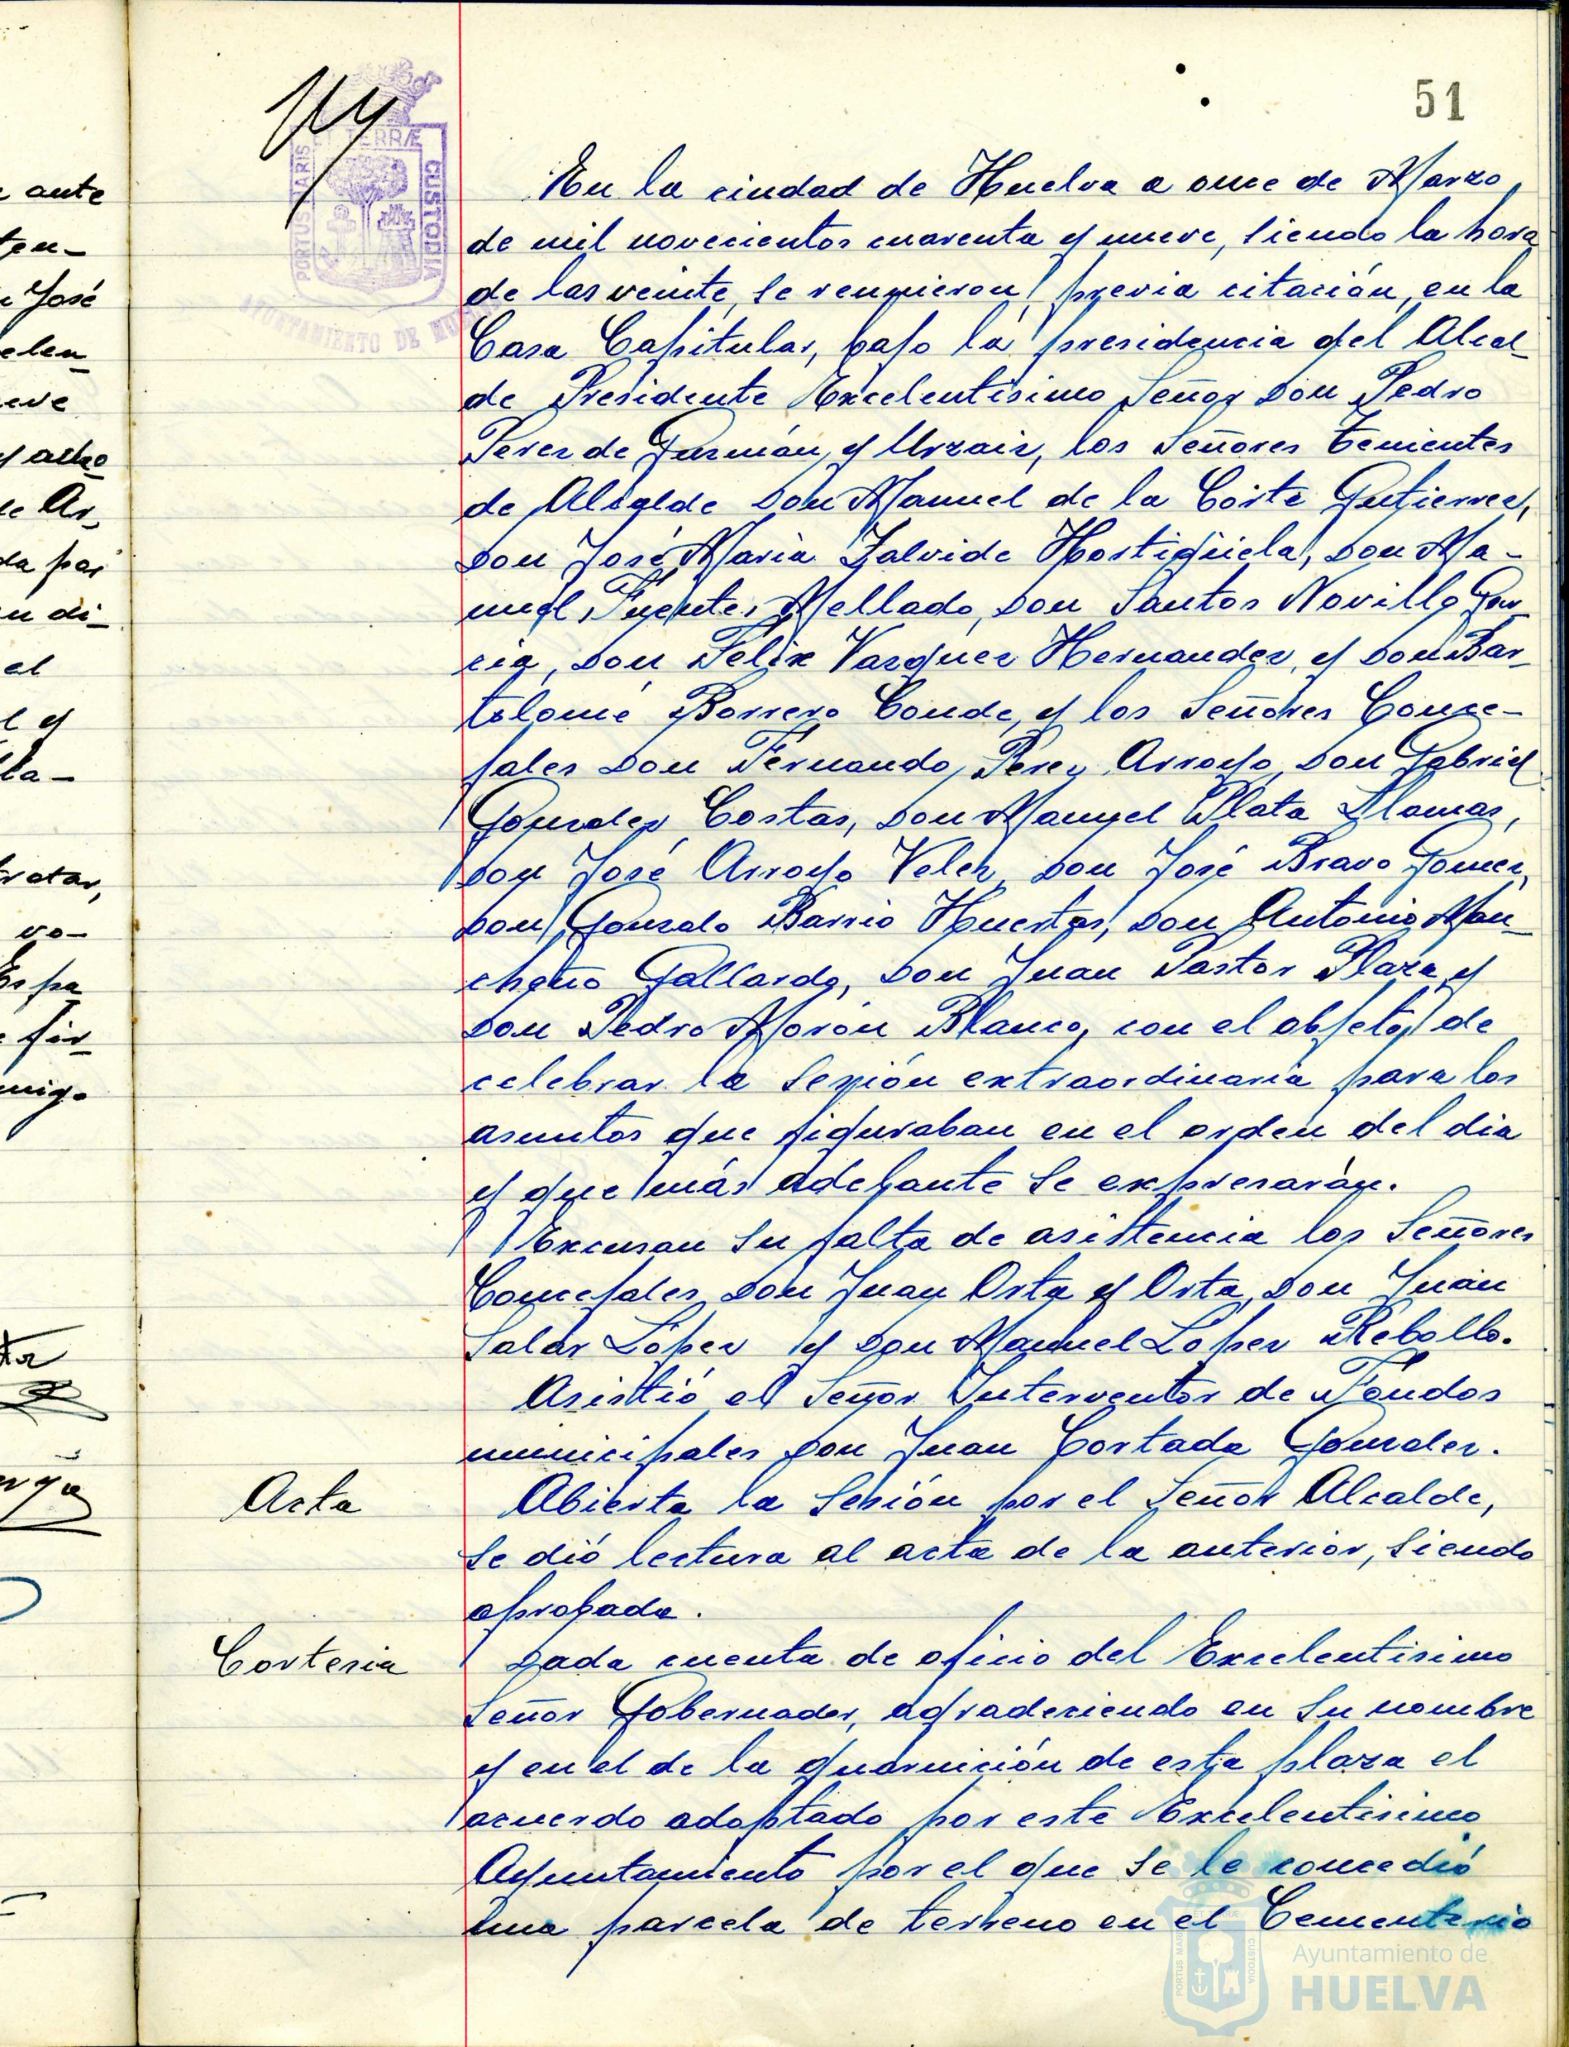 51
En la ciudad de Huelva a once de Marzo
de mil novecientos cuarenta y nueve, siendo la hora
de las veinte, se reunieron, previa citación, en la
Casa Capitular, bajo la presidencia del Alcal-
de Presidente Excelentisimo Señor Don Pedro
Perez de Guzmán y Urzaiz, los Señores Tenientes
de Alcalde Don Manuel de la Corte Gutierrez,
Don José Maria Zalvide Hortigüela, Don Ma-
nuel Fuentes Mellado, Don Santos Novillo Gar-
cia, Don Felix Vazquez Hernandez, y Don Bar-
tolomé Borrero Conde, y los Señores Conce-
jales Don Fernando Perez Arroyo, Don Gabriel
Gonzalez Costas, Don Manuel Plata Llamas,
Don José Arroyo Velez, Don José Bravo Gomez,
Don Gonzalo Barrio Huertas, Don Antonio Man-
cheño Gallardo, Don Juan Pastor Plaza y
Don Pedro Morón Blanco, con el objeto de
celebrar la sesión extraordinaria para los
asuntos que figuraban en el orden del dia
y que más adelante se expresarán.
Excusan su falta de asistencia los Señores
Concejales Don Juan Orta y Orta, Don Juan
Salas López y Don Manuel López Rebollo.
Asistió el Señor Interventor de Fondos
municipales Don Juan Cortada Gonzalez.
Acta
Abierta la Sesión por el Señor Alcalde,
se dió lectura al acta de la anterior, siendo
aprobada.
Cortesia
Dada cuenta de oficio del Excelentisimo
Señor Gobernador, agradeciendo en su nombre
y en el de la guarnición de esta plaza el
acuerdo adoptado por este Excelentisimo
Ayuntamiento por el que se le concedió
una parcela de terreno en el Cementerio
PORTUS MARIS
ET TERRÆ
CUSTODIA
AYUNTAMIENTO DE
Ayuntamiento de
HUELVA
ante
José
eve
el
tratar,